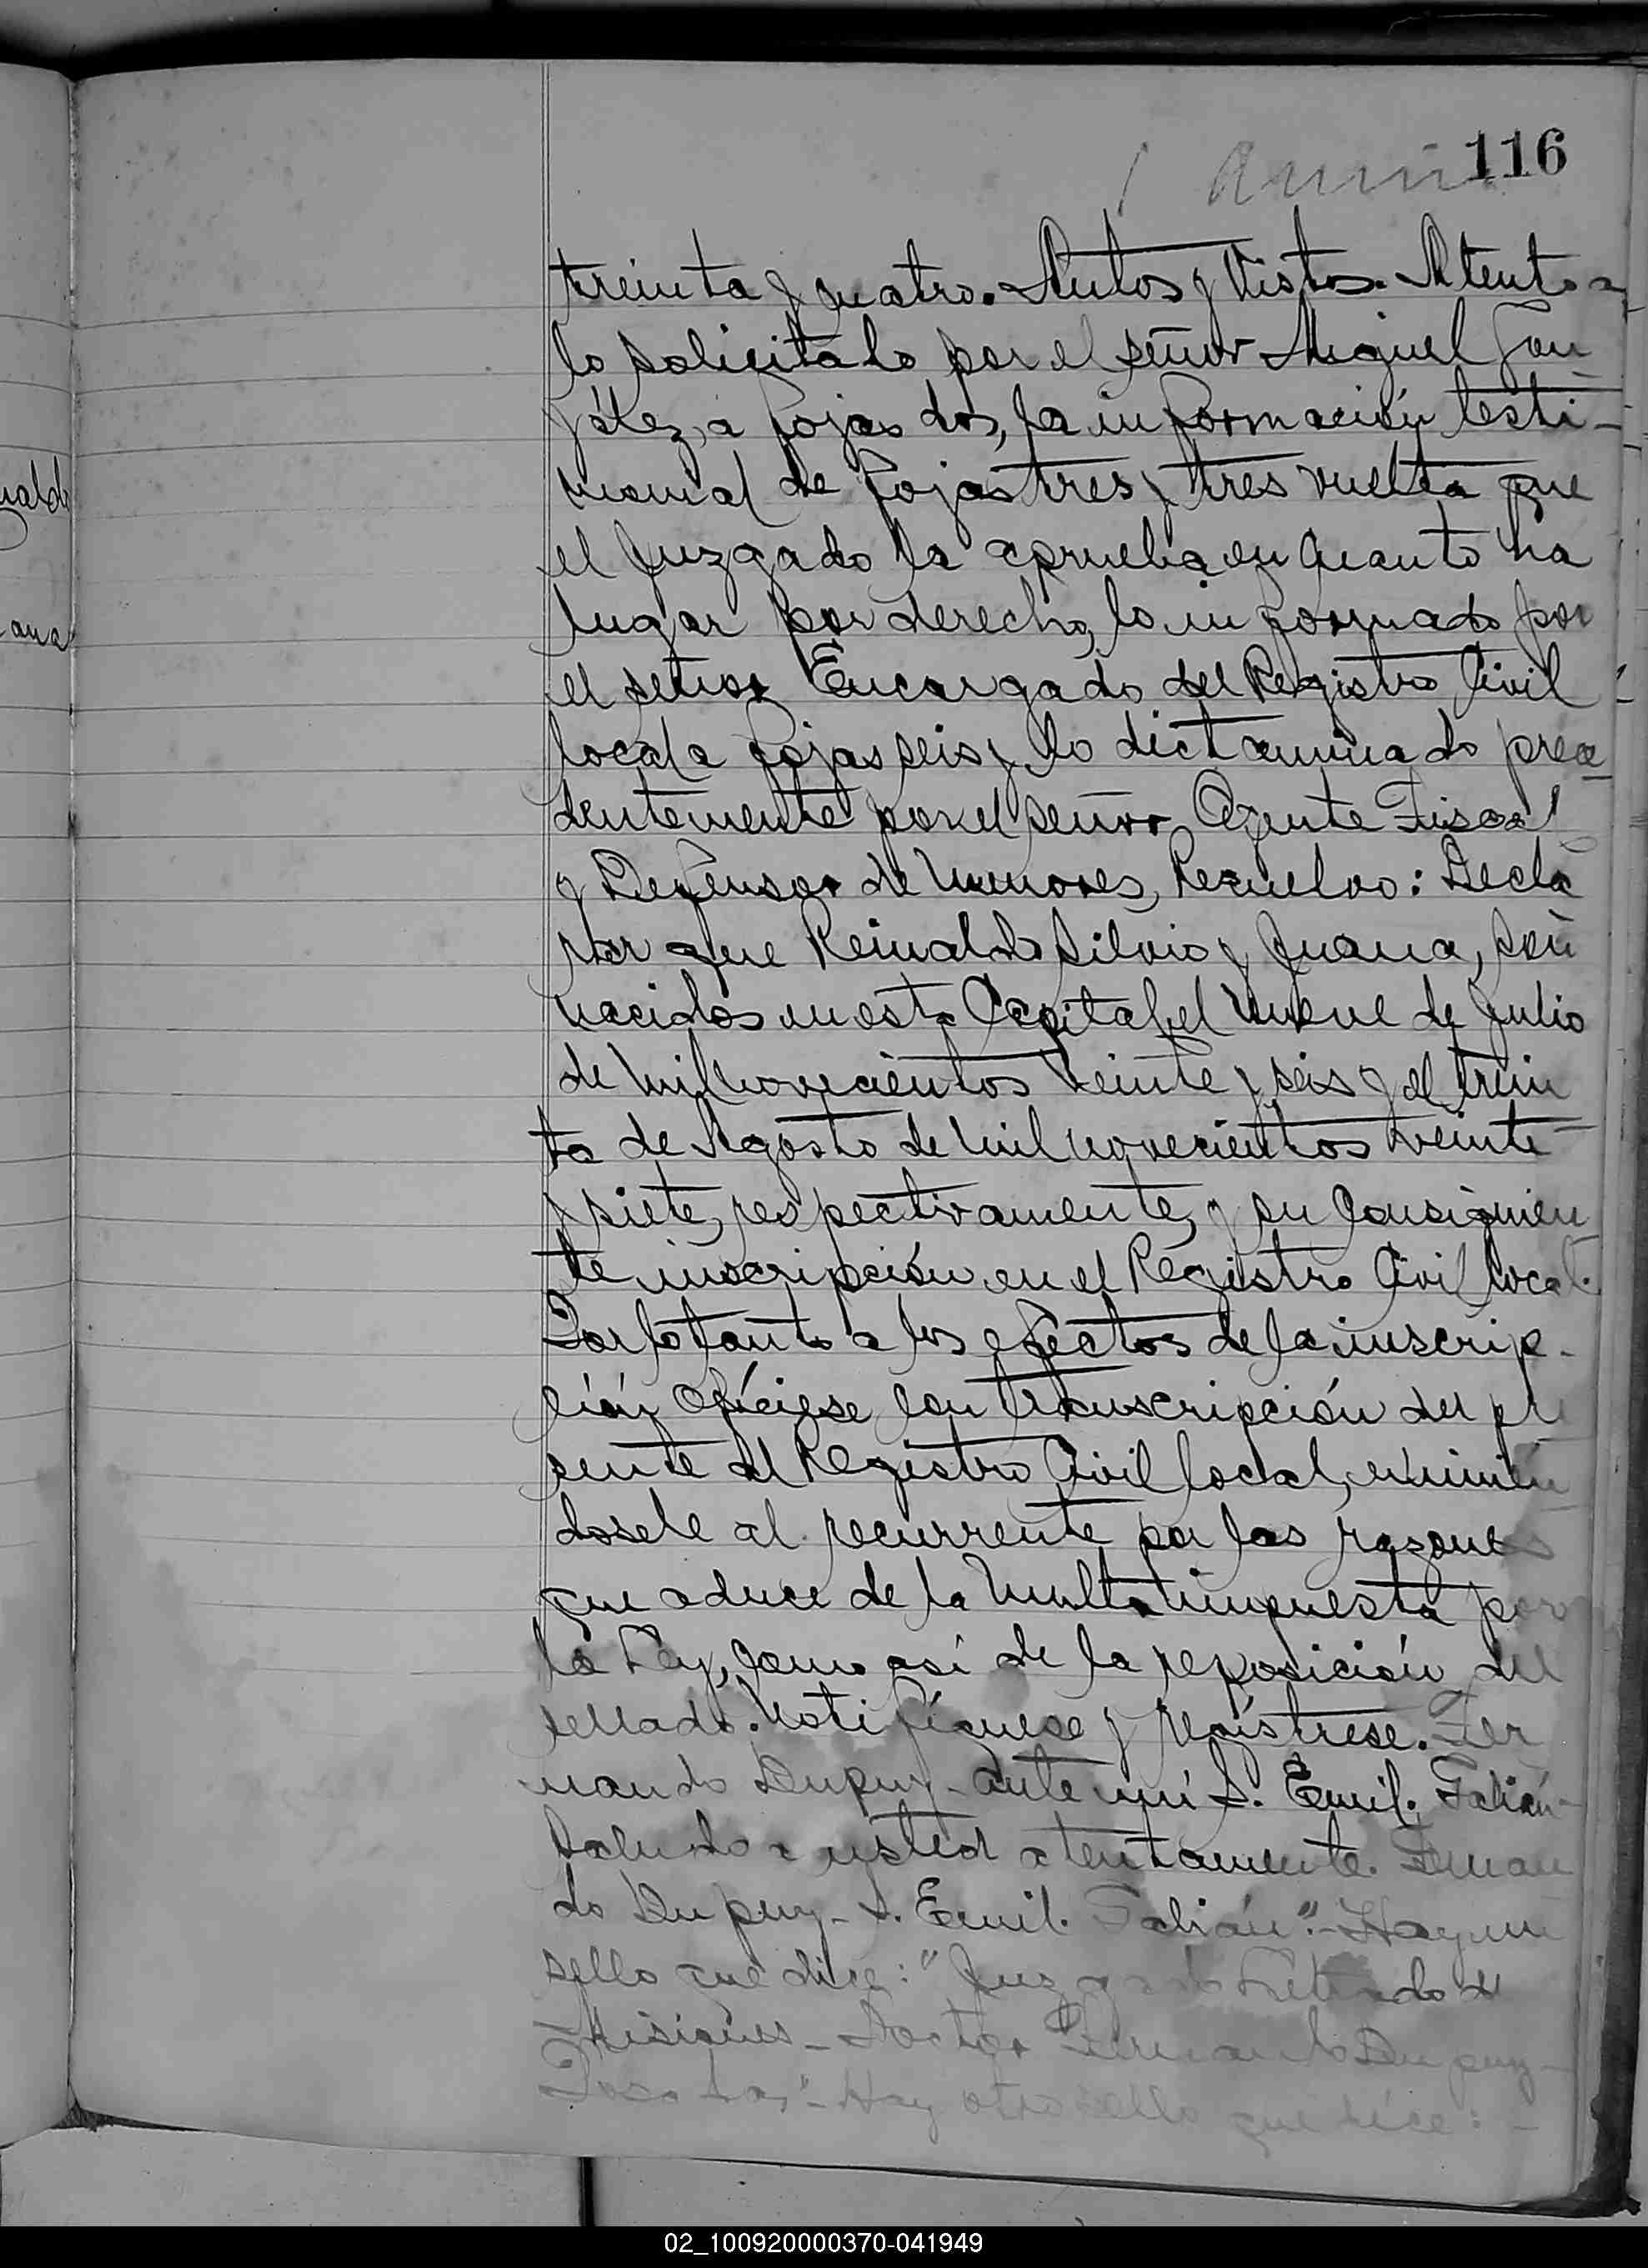 nald
ana
116
treinta y cuatro. Autos y Vistos. Atento a
lo solicitado por el señor Miguel Gon
zález, a fojas dos, la información testi-
monial de fojas tres y tres vuelta que
el Juzgado la aprueba en cuanto ha
lugar por derecho, lo informado por
el señor Encargado del Registro Civil
local a fojas seis y lo dictaminado prece
dentemente por el señor Agente Fiscal
y Defensor de Menores, Resuelvo: Decla
rar que Reinaldo Silvio y Juana, son
nacidos en esta Capital, el nueve de Julio
de mil novecientos veinte y seis y el trein
ta de Agosto de mil novecientos veinte
y siete, respectivamente, y su consiguien
te inscripción en el Registro Civil local.
Por lo tanto a los efectos de la inscrip-
ción, ofíciese con transcripción del pre
sente al Registro Civil local, eximién
dosele al recurrente por las razones
que aduce de la multa impuesta por
la Ley, como así de la reposición del
sellado. Notifíquese y regístrese. Fer
nando Dupuy - Ante mí S. Emil. Galián-
Saludo a usted atentamente. Fernan
do Dupuy - S. Emil. Galián". - Hay un
sello que dice: "Juzgado Letrado de
Misiones - Doctor Fernando Dupuy -
Posadas" - Hay otro sello que dice: -
02_100920000370-041949